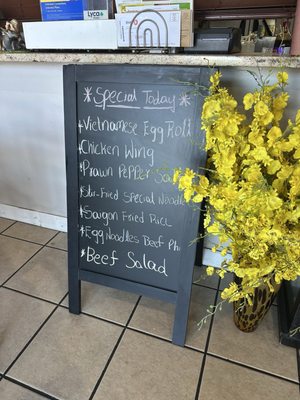 Lyca
Special Today
Vietnamese Egg Roll
Chicken Wing
Prawn Pepper
Stir-Fried Special Noodle
Saigon Fried Rice
Egg Noodles Beef Pho
Beef Salad